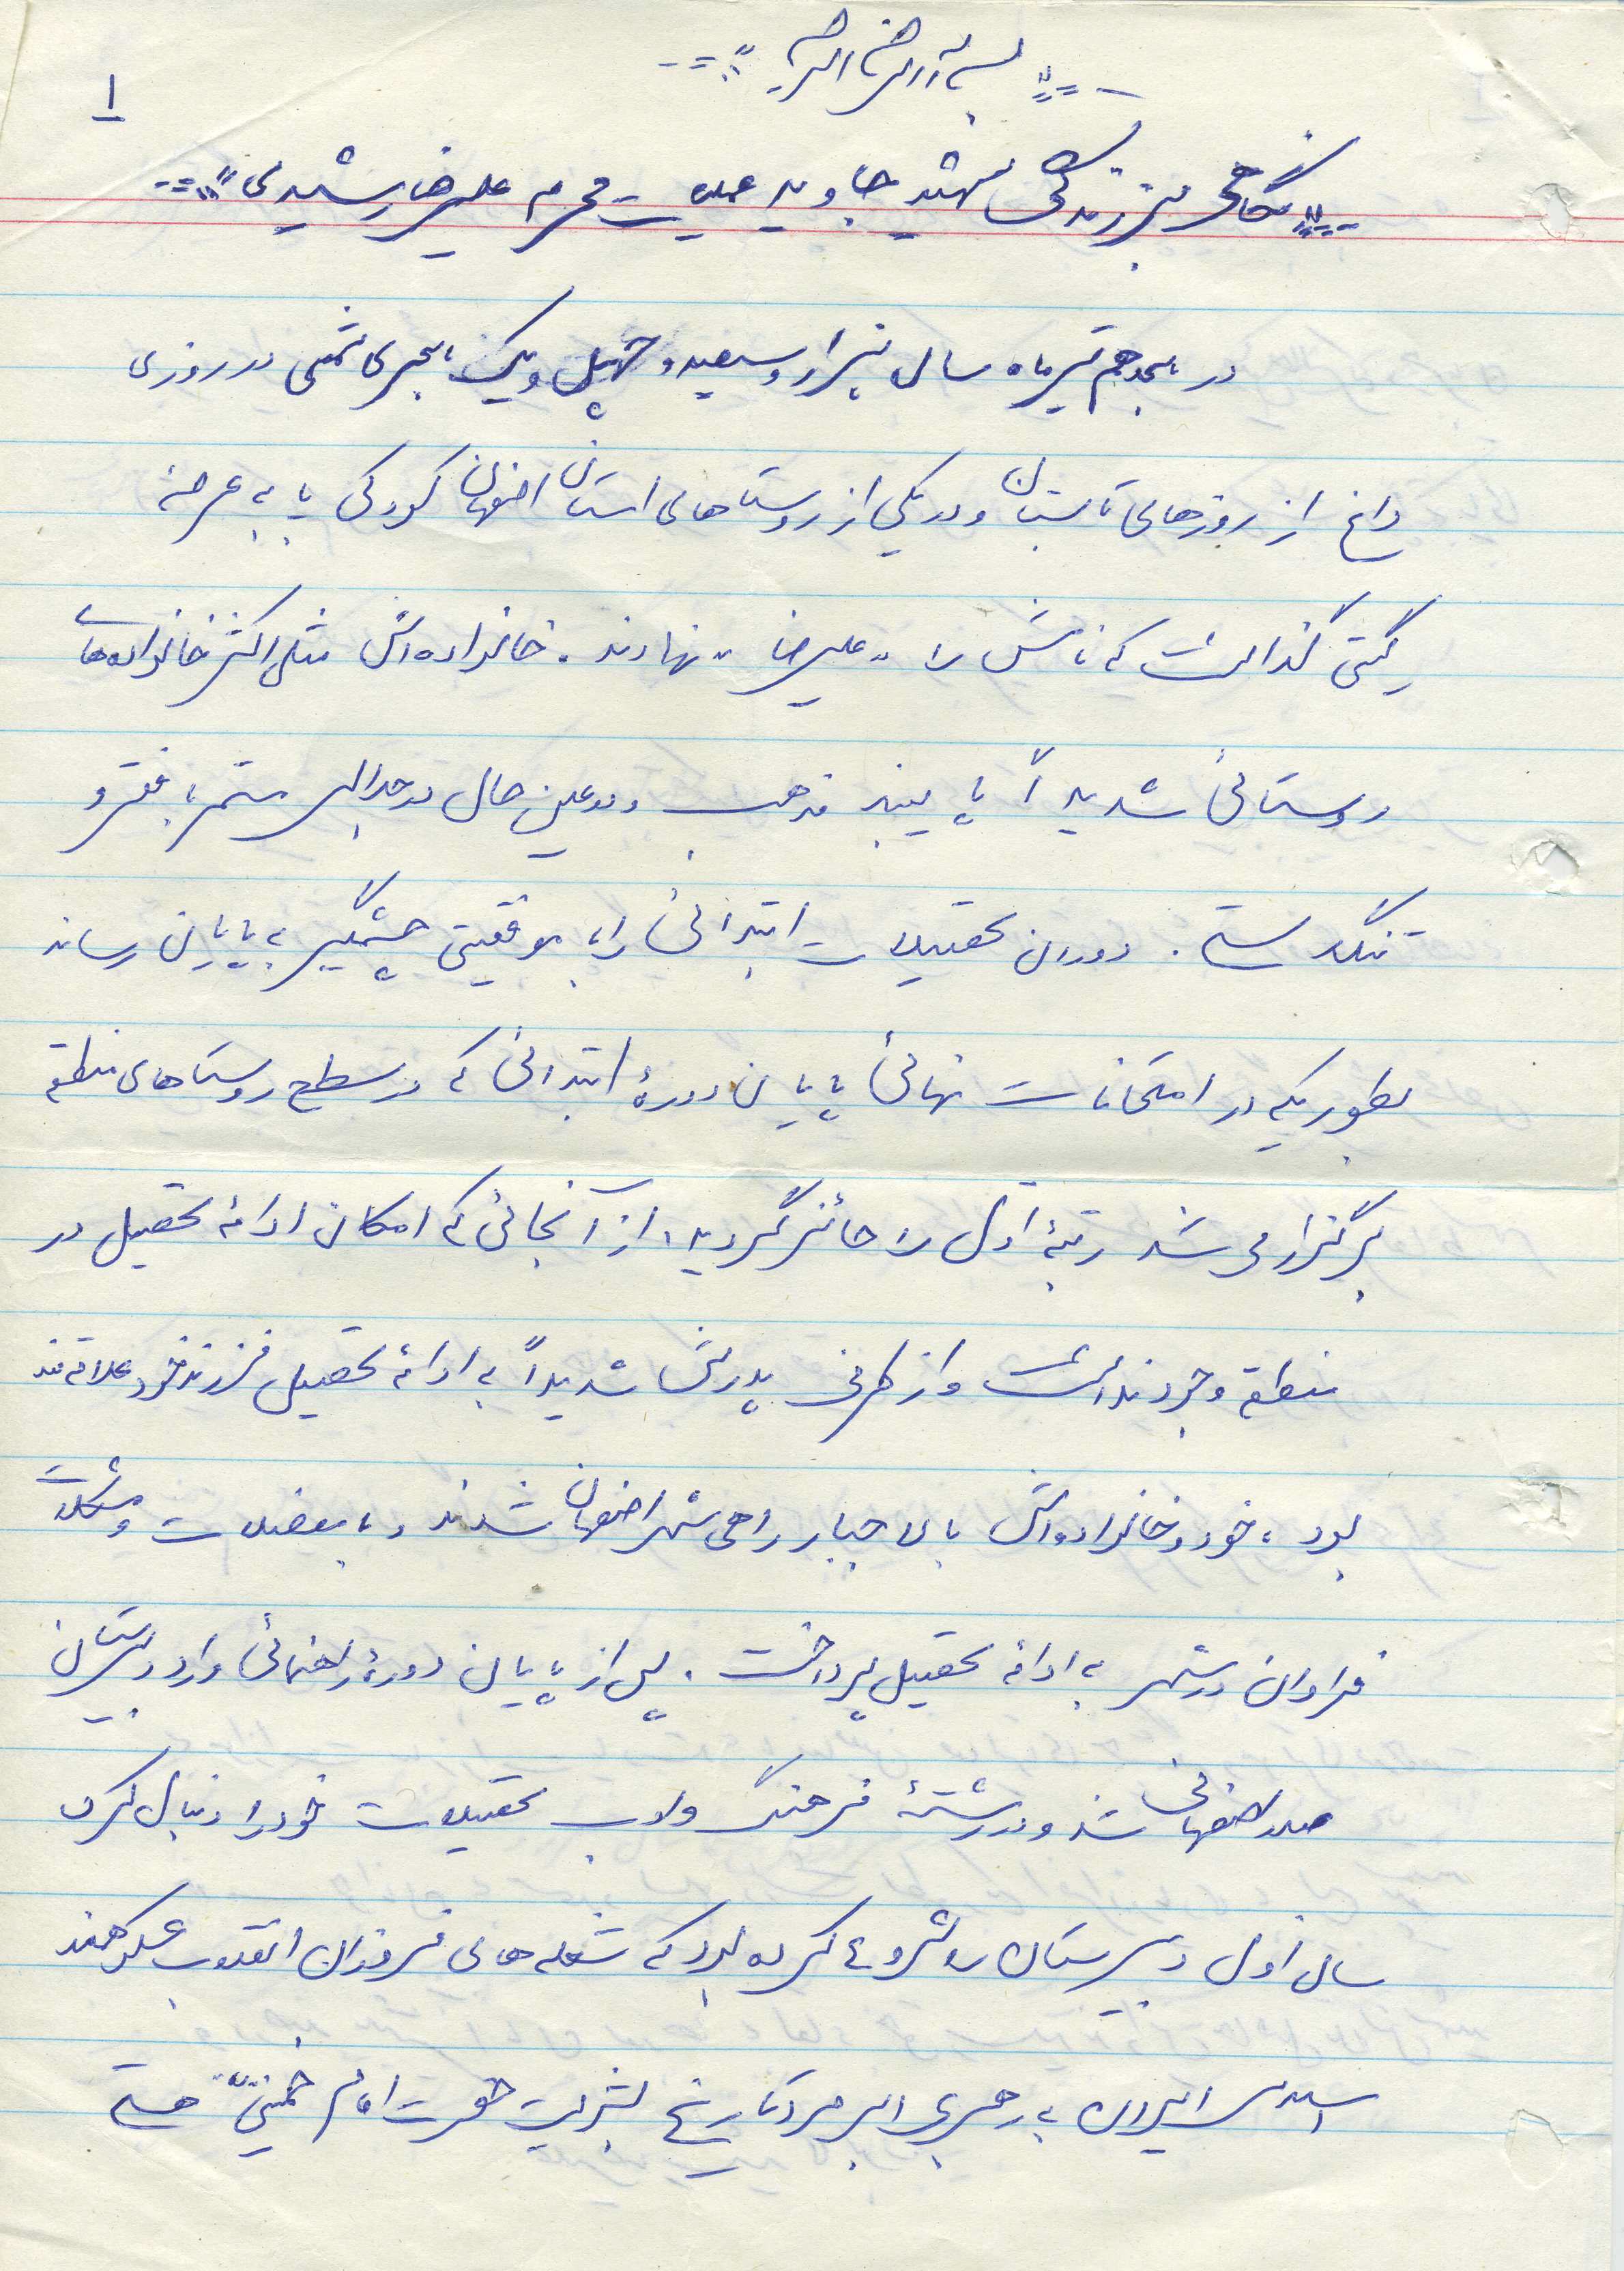 بسم الله الرحمن الرحیم
۱
نگاهی بر زندگی شهید جاوید عملیات محرم علیرضا رشیدی
در هجدهم تیرماه سال هزار و سیصد و چهل و یک هجری شمسی در روزی
داغ از روزهای تابستان و در یکی از روستاهای استان اصفهان کودکی پا به عرصهٔ
گیتی گذاشت که نامش را «علیرضا» نهادند. خانواده‌اش مثل اکثر خانواده‌های
روستائی شدیداً پایبند مذهب و در عین حال در جدالی مستمر با فقر و
تنگدستی. دوران تحصیلات ابتدائی را با موفقیتی چشمگیر به پایان رساند
بطوریکه در امتحانات نهائی پایان دورهٔ ابتدائی که در سطح روستاهای منطقه
برگزار می‌شد رتبهٔ اول را حائز گردید، از آنجائی که امکان ادامهٔ تحصیل در
منطقه وجود نداشت و از طرفی پدرش شدیداً به ادامهٔ تحصیل فرزند خود علاقه‌مند
بود، خود و خانواده‌اش بالاجبار راهی شهر اصفهان شدند و با معضلات و مشکلات
فراوان در شهر به ادامهٔ تحصیل پرداخت. پس از پایان دورهٔ راهنمائی وارد دبیرستان
صدر اصفهانی شد و در رشتهٔ فرهنگ و ادب تحصیلات خود را دنبال کرد
سال اول دبیرستان را شروع کرده بود که شعله‌های فروزان انقلاب شکوهمند
اسلامی ایران به رهبری ابرمرد تاریخ بشریت حضرت امام خمینی هستی